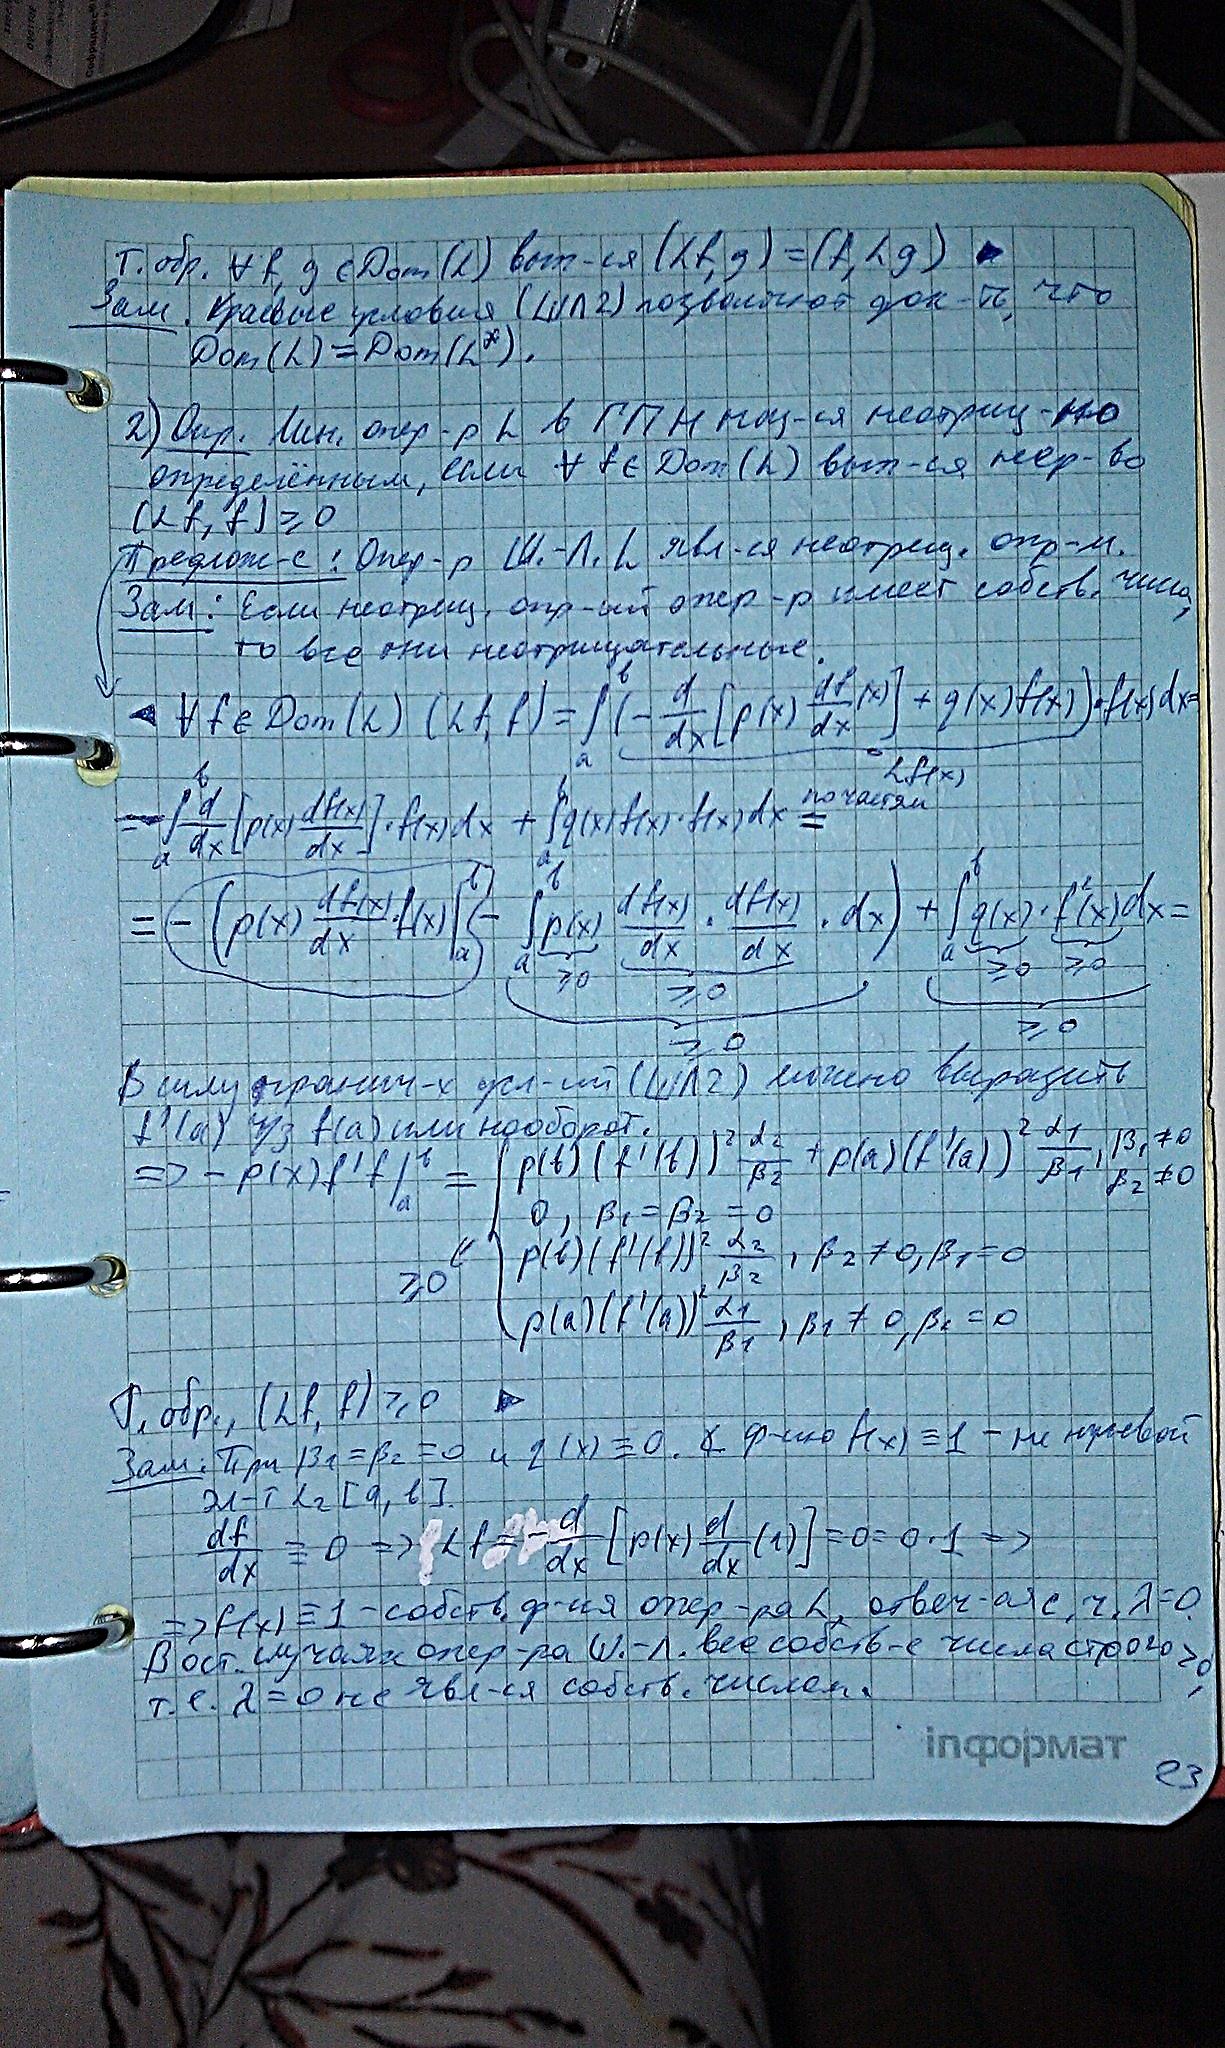 Т. обр. ∀ f, g ∈ Dom(L) вып-ся (Lf, g) = (f, Lg) ▶
Зам. Краевые условия (ШЛ2) позволяют док-ть, что
Dom(L) = Dom(L*).
2) Опр. Лин. опер-р L в ГПН наз-ся неотриц-но
определённым, если ∀ f ∈ Dom(L) вып-ся нер-во
(Lf, f) ≥ 0
Предлож-е: Опер-р Ш.-Л. L явл-ся неотриц. опр-м.
Зам: Если неотриц. опр-ый опер-р имеет собств. числа,
то все они неотрицательные.
◀ ∀ f ∈ Dom(L) (Lf, f) = ∫_a^b (- d/dx [p(x) df/dx (x)] + q(x) f(x)) · f(x) dx =
Lf(x)
= - ∫_a^b d/dx [p(x) df(x)/dx] · f(x) dx + ∫_a^b q(x) f(x) · f(x) dx = по частям
= - (p(x) df(x)/dx · f(x) |_a^b - ∫_a^b p(x) df(x)/dx · df(x)/dx · dx) + ∫_a^b q(x) · f²(x) dx =
≥0 ≥0 ≥0 ≥0
≥0 ≥0
В силу гранич-х усл-ий (ШЛ2) можно выразить
f'(a) ч/з f(a) или наоборот.
=> - p(x) f' f |_a^b = { p(b) (f'(b))² α₂/β₂ + p(a) (f'(a))² α₁/β₁, β₁ ≠ 0 β₂ ≠ 0
0, β₁ = β₂ = 0
≥0 p(b) (f'(b))² α₂/β₂, β₂ ≠ 0, β₁ = 0
p(a) (f'(a))² α₁/β₁, β₁ ≠ 0, β₂ = 0
Т. обр., (Lf, f) ≥ 0 ▶
Зам: При β₁ = β₂ = 0 и q(x) ≡ 0. ф-ию f(x) ≡ 1 - не нулевой
эл-т L₂ [a, b].
df/dx ≡ 0 => Lf = - d/dx [p(x) d/dx (1)] = 0 = 0·1 =>
=> f(x) ≡ 1 - собств. ф-ия опер-ра L, отвеч-ая с. ч. λ=0.
В ост. случаях опер-ра Ш.-Л. все собств-е числа строго >0,
т.е. λ = 0 не явл-ся собств. числом.
inформат
23